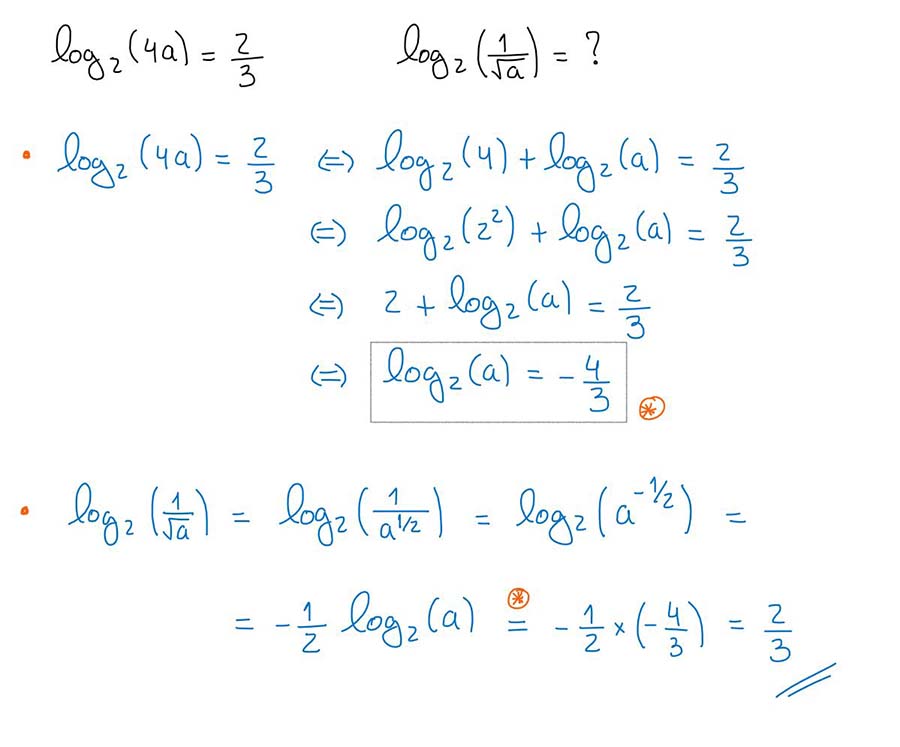 log₂(4a) = 2/3    log₂(1/√a) = ?
• log₂(4a) = 2/3 (=) log₂(4) + log₂(a) = 2/3
(=) log₂(2²) + log₂(a) = 2/3
(=) 2 + log₂(a) = 2/3
(=) log₂(a) = -4/3 ⊛
• log₂(1/√a) = log₂(1/a^1/2) = log₂(a^-1/2) =
= -1/2 log₂(a) =^⊛ -1/2 × (-4/3) = 2/3